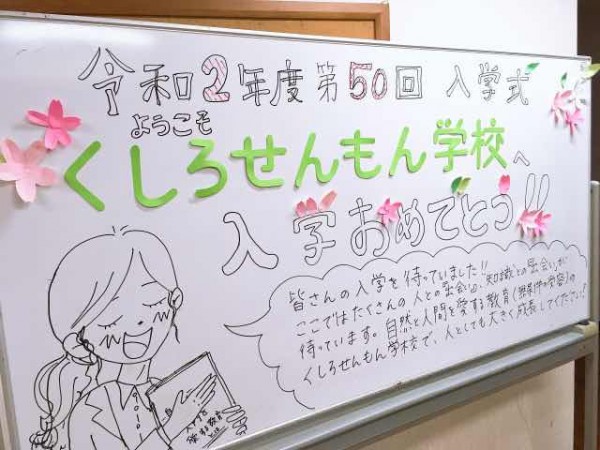 令和2年度第50回 入学式
ようこそ
くしろせんもん学校へ
入学おめでとう!!
皆さんの入学を待っていました!!
ここではたくさんの人との出会い、知識との出会いが
待っています。自然と人間を愛する教育(無条件の受容)の
くしろせんもん学校で、人としても大きく成長してください!
人間を
愛する教育
とは